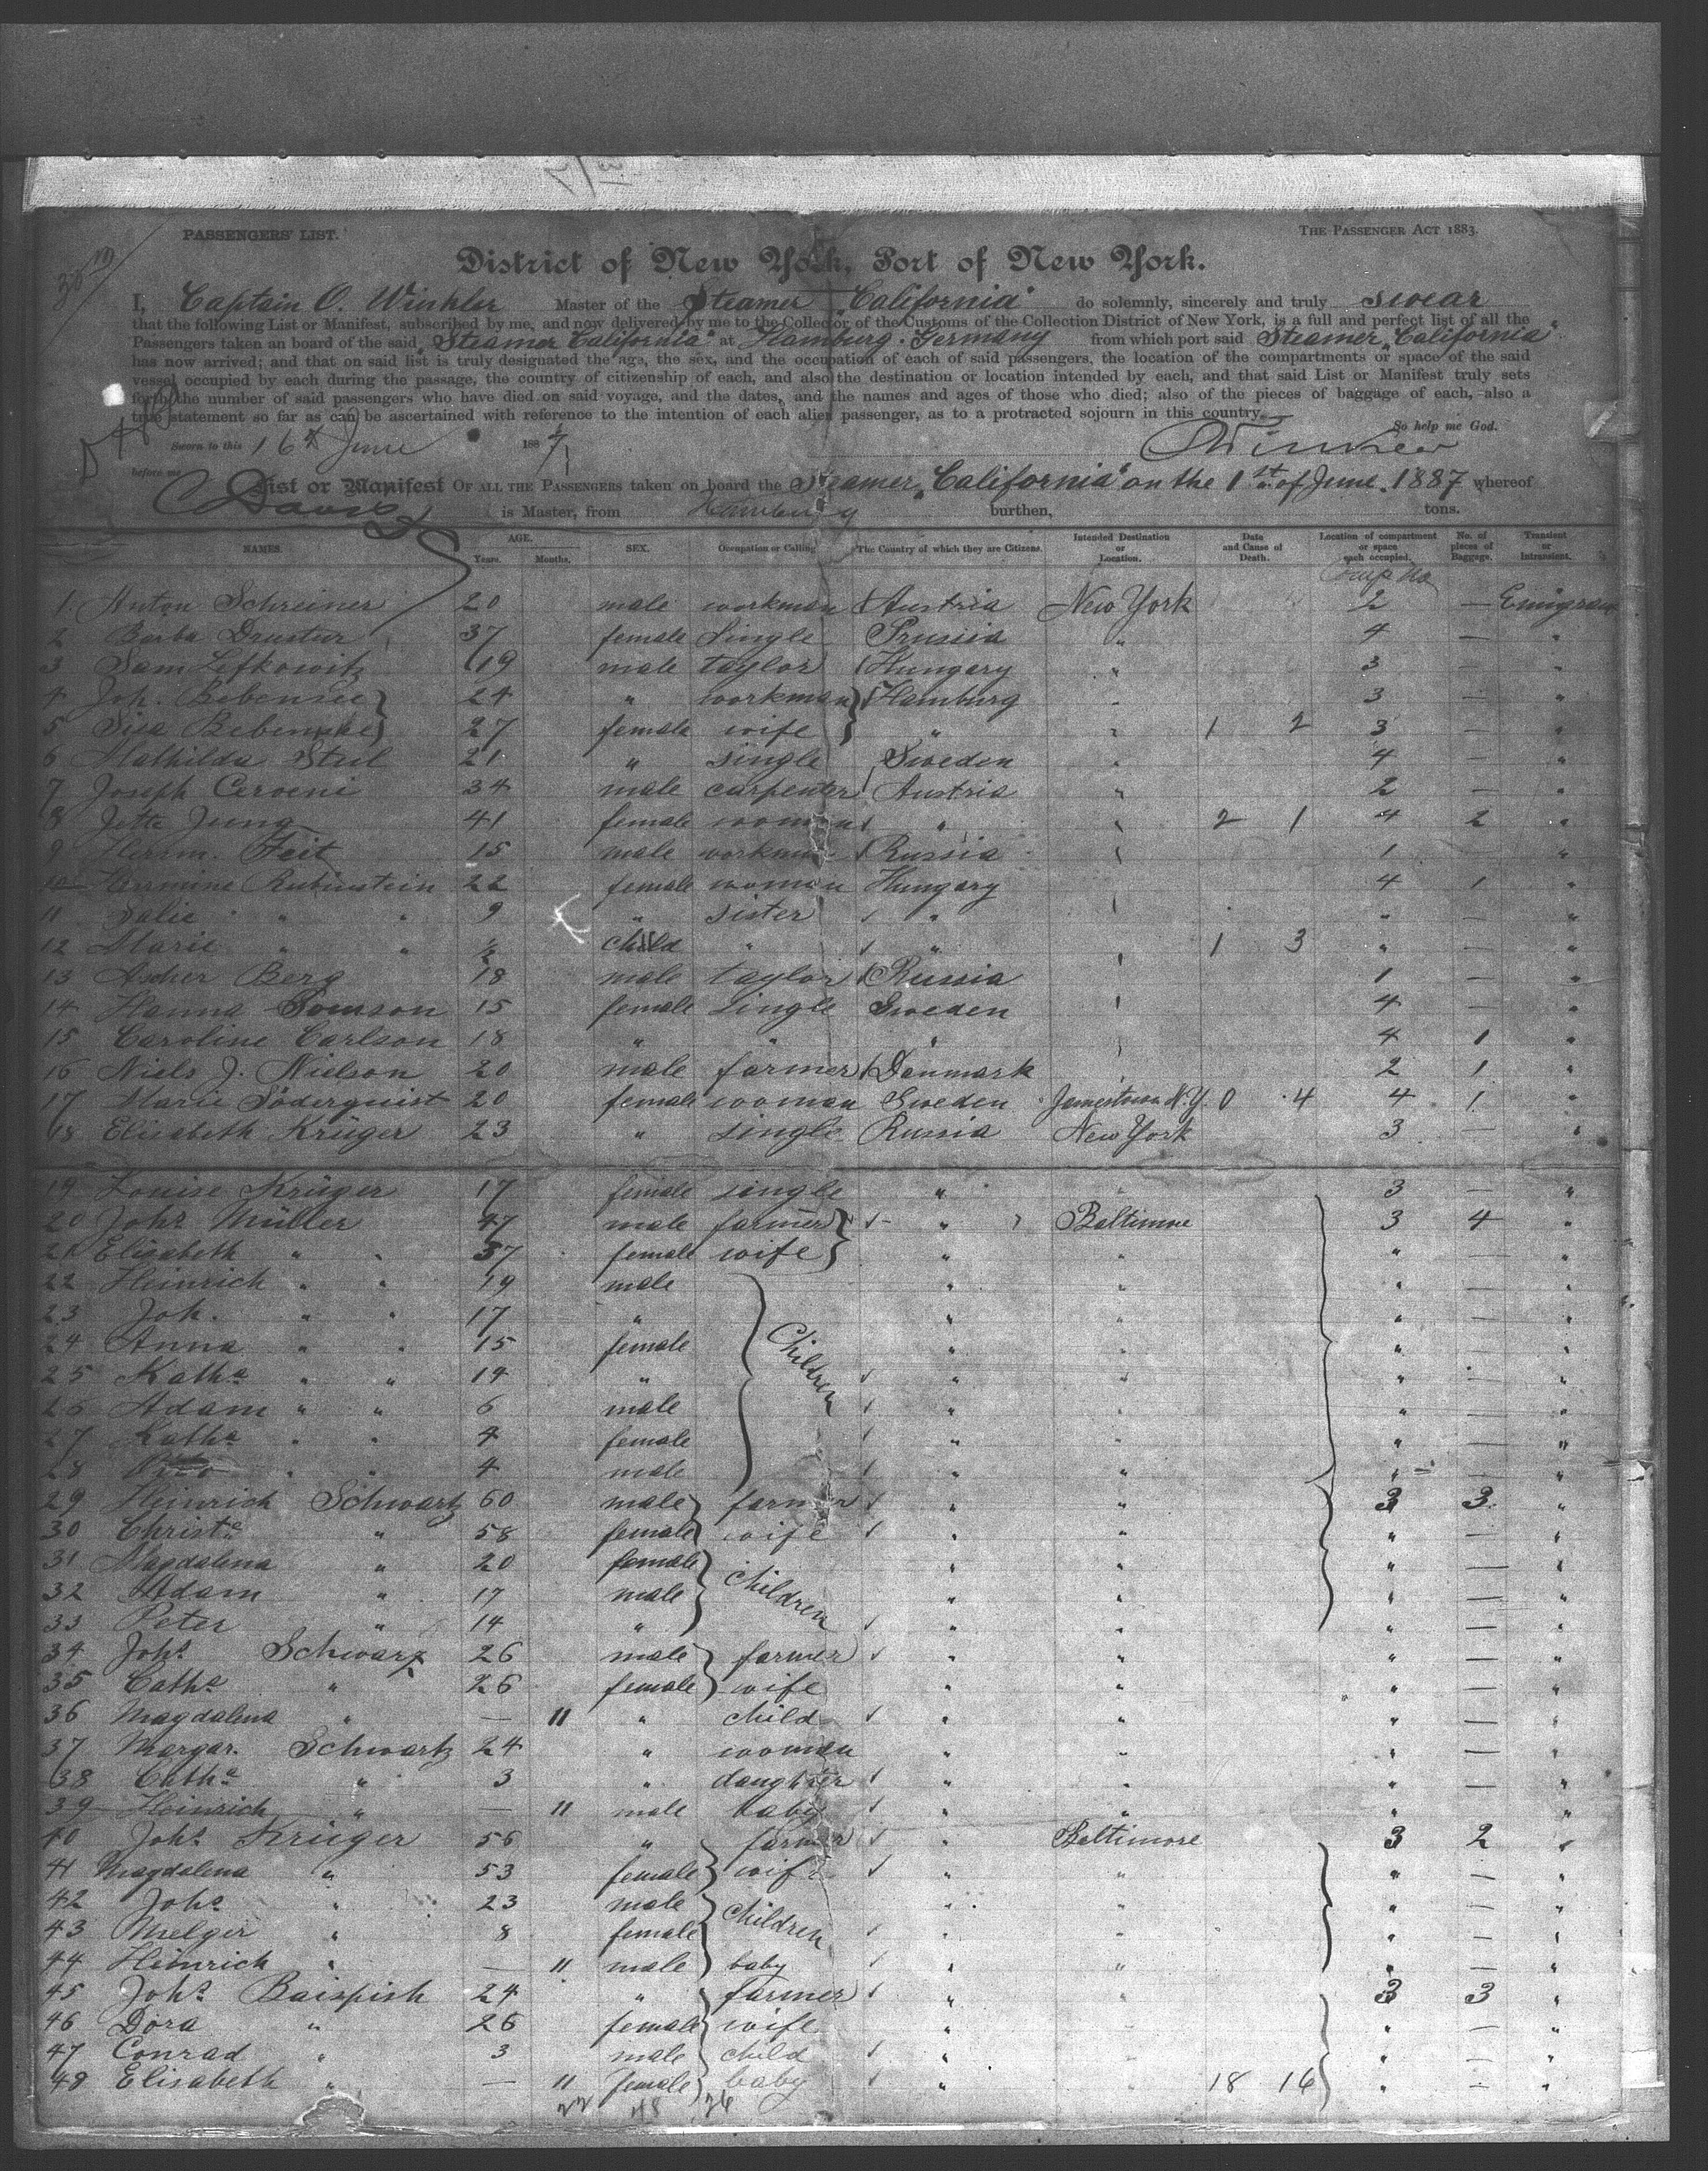 PASSENGERS' LIST.
THE PASSENGER ACT 1883.
District of New York, Port of New York.
I, Captain O. Winkler Master of the Steamer "California" do solemnly, sincerely and truly swear
that the following List or Manifest, subscribed by me, and now delivered by me to the Collector of the Customs of the Collection District of New York, is a full and perfect list of all the
Passengers taken an board of the said "Steamer California" at Hamburg. Germany from which port said Steamer "California"
has now arrived; and that on said list is truly designated the age, the sex, and the occupation of each of said passengers, the location of the compartments or space of the said
vessel occupied by each during the passage, the country of citizenship of each, and also the destination or location intended by each, and that said List or Manifest truly sets
forth the number of said passengers who have died on said voyage, and the dates, and the names and ages of those who died; also of the pieces of baggage of each, also a
true statement so far as can be ascertained with reference to the intention of each alien passenger, as to a protracted sojourn in this country.
So help me God.
Sworn to this 16th June 1887
before me
List or Manifest OF ALL THE PASSENGERS taken on board the Steamer "California" on the 1st of June 1887 whereof
is Master, from Hamburg burthen, tons.
NAMES. AGE. Years. Months. SEX. Occupation or Calling The Country of which they are Citizens. Intended Destination or Location. Date and Cause of Death. Location of compartment or space each occupied. No. of pieces of Baggage. Transient or Intransient.
1. Anton Schreiner 20 male workman Austria New York 2 — Emigrant
2 Barba 37 female Single Prussia " 4 — "
3 Sam Lefkowitz 19 male taylor Hungary " 3 — "
4 Joh. Bebensee 24 " workman Hamburg " 3 — "
5 Bebensee 27 female wife " " 1 2 3 — "
6 Mathilda 21 " single Sweden " 4 — "
7 Joseph Cerveni 34 male carpenter Austria " 2 — "
8 Jette Jung 41 female woman " " 2 1 4 2 "
9 Herrm. Feit 15 male workman Russia " 1 — "
10 Hermine Rubinstein 22 female woman Hungary " 4 1 "
11 Salie " " 9 " sister " " " — "
12 Marie " " child " " " 1 3 " — "
13 Ascher Berg 18 male taylor Russia " 1 — "
14 Hanna 15 female single Sweden " 4 — "
15 Caroline Carlson 18 " " " " 4 1 "
16 Niels J. Nielson 20 male farmer Danmark " 2 1 "
17 Marie Söderquist 20 female woman Sweden Jamestown N.Y. 0 4 4 1 "
18 Elisabeth Krüger 23 " single Russia New York 3 — "
19 Louise Krüger 17 female single " " 3 — "
20 Johs Müller 47 male farmer " Baltimore 3 4 "
21 Elisabeth " " 37 female wife " " " — "
22 Heinrich " " 19 male " " " — "
23 Joh. " " 17 " Children " " " — "
24 Anna " " 15 female " " " — "
25 Katha " " 14 " " " " — "
26 Adam " " 6 male " " " — "
27 Katha " " 4 female " " " — "
28 " " 4 male " " " — "
29 Heinrich Schwartz 60 male farmer " " 3 3 "
30 Christe " 58 female wife " " " — "
31 Magdalena " 20 female children " " " — "
32 Adam " 17 male " " " — "
33 Peter " 14 " " " " — "
34 Johs Schwarz 26 male farmer " " " — "
35 Catha " 26 female wife " " " — "
36 Magdalena " — 11 " child " " " — "
37 Margar. Schwartz 24 " woman " " " — "
38 Catha " 3 " daughter " " " — "
39 Heinrich " — 11 male baby " " " — "
40 Johs Krüger 56 " farmer " Baltimore 3 2 "
41 Magdalena " 53 female wife " " " — "
42 Johs " 23 male children " " " — "
43 " 8 female " " " — "
44 Heinrich " — 11 male baby " " " — "
45 Johs 24 " farmer " " 3 3 "
46 Dora " 26 female wife " " — "
47 Conrad " 3 male child " " " — "
48 Elisabeth " — 11 female baby " " 18 16 " — "
22 48 26